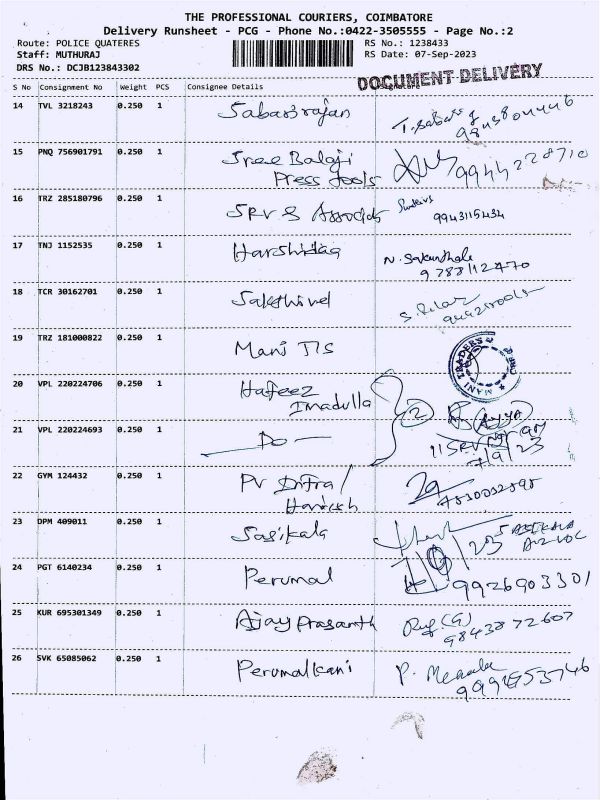 THE PROFESSIONAL COURIERS, COIMBATORE
Delivery Runsheet - PCG - Phone No.:0422-3505555 - Page No.:2
Route: POLICE QUATERES RS No.: 1238433
Staff: MUTHURAJ RS Date: 07-Sep-2023
DRS No.: DCJB123843302
DOCUMENT DELIVERY
S No Consignment No Weight PCS Consignee Details
14 TVL 3218243 0.250 1 Sabarirajan
15 PNQ 756901791 0.250 1 Sree Balaji
Press tools
9944228710
16 TRZ 285180796 0.250 1 SRV & Associats
9943115434
17 TNJ 1152535 0.250 1 Harshidaa N. Sakunthala
9788112470
18 TCR 30162701 0.250 1 Sakthivel
19 TRZ 181000822 0.250 1 Mani T/S
MANI TRADERS
20 VPL 220224706 0.250 1 Hafeez
Imadulla 2
21 VPL 220224693 0.250 1 — Do —
7/9/23
22 GYM 124432 0.250 1 PV Infra /
Harish
23 DPM 409011 0.250 1 Sasikala SASIKALA
24 PGT 6140234 0.250 1 Perumal 9926903301
25 KUR 695301349 0.250 1 Ajay Prasanth
9843872607
26 SVK 65085062 0.250 1 Perumalkani